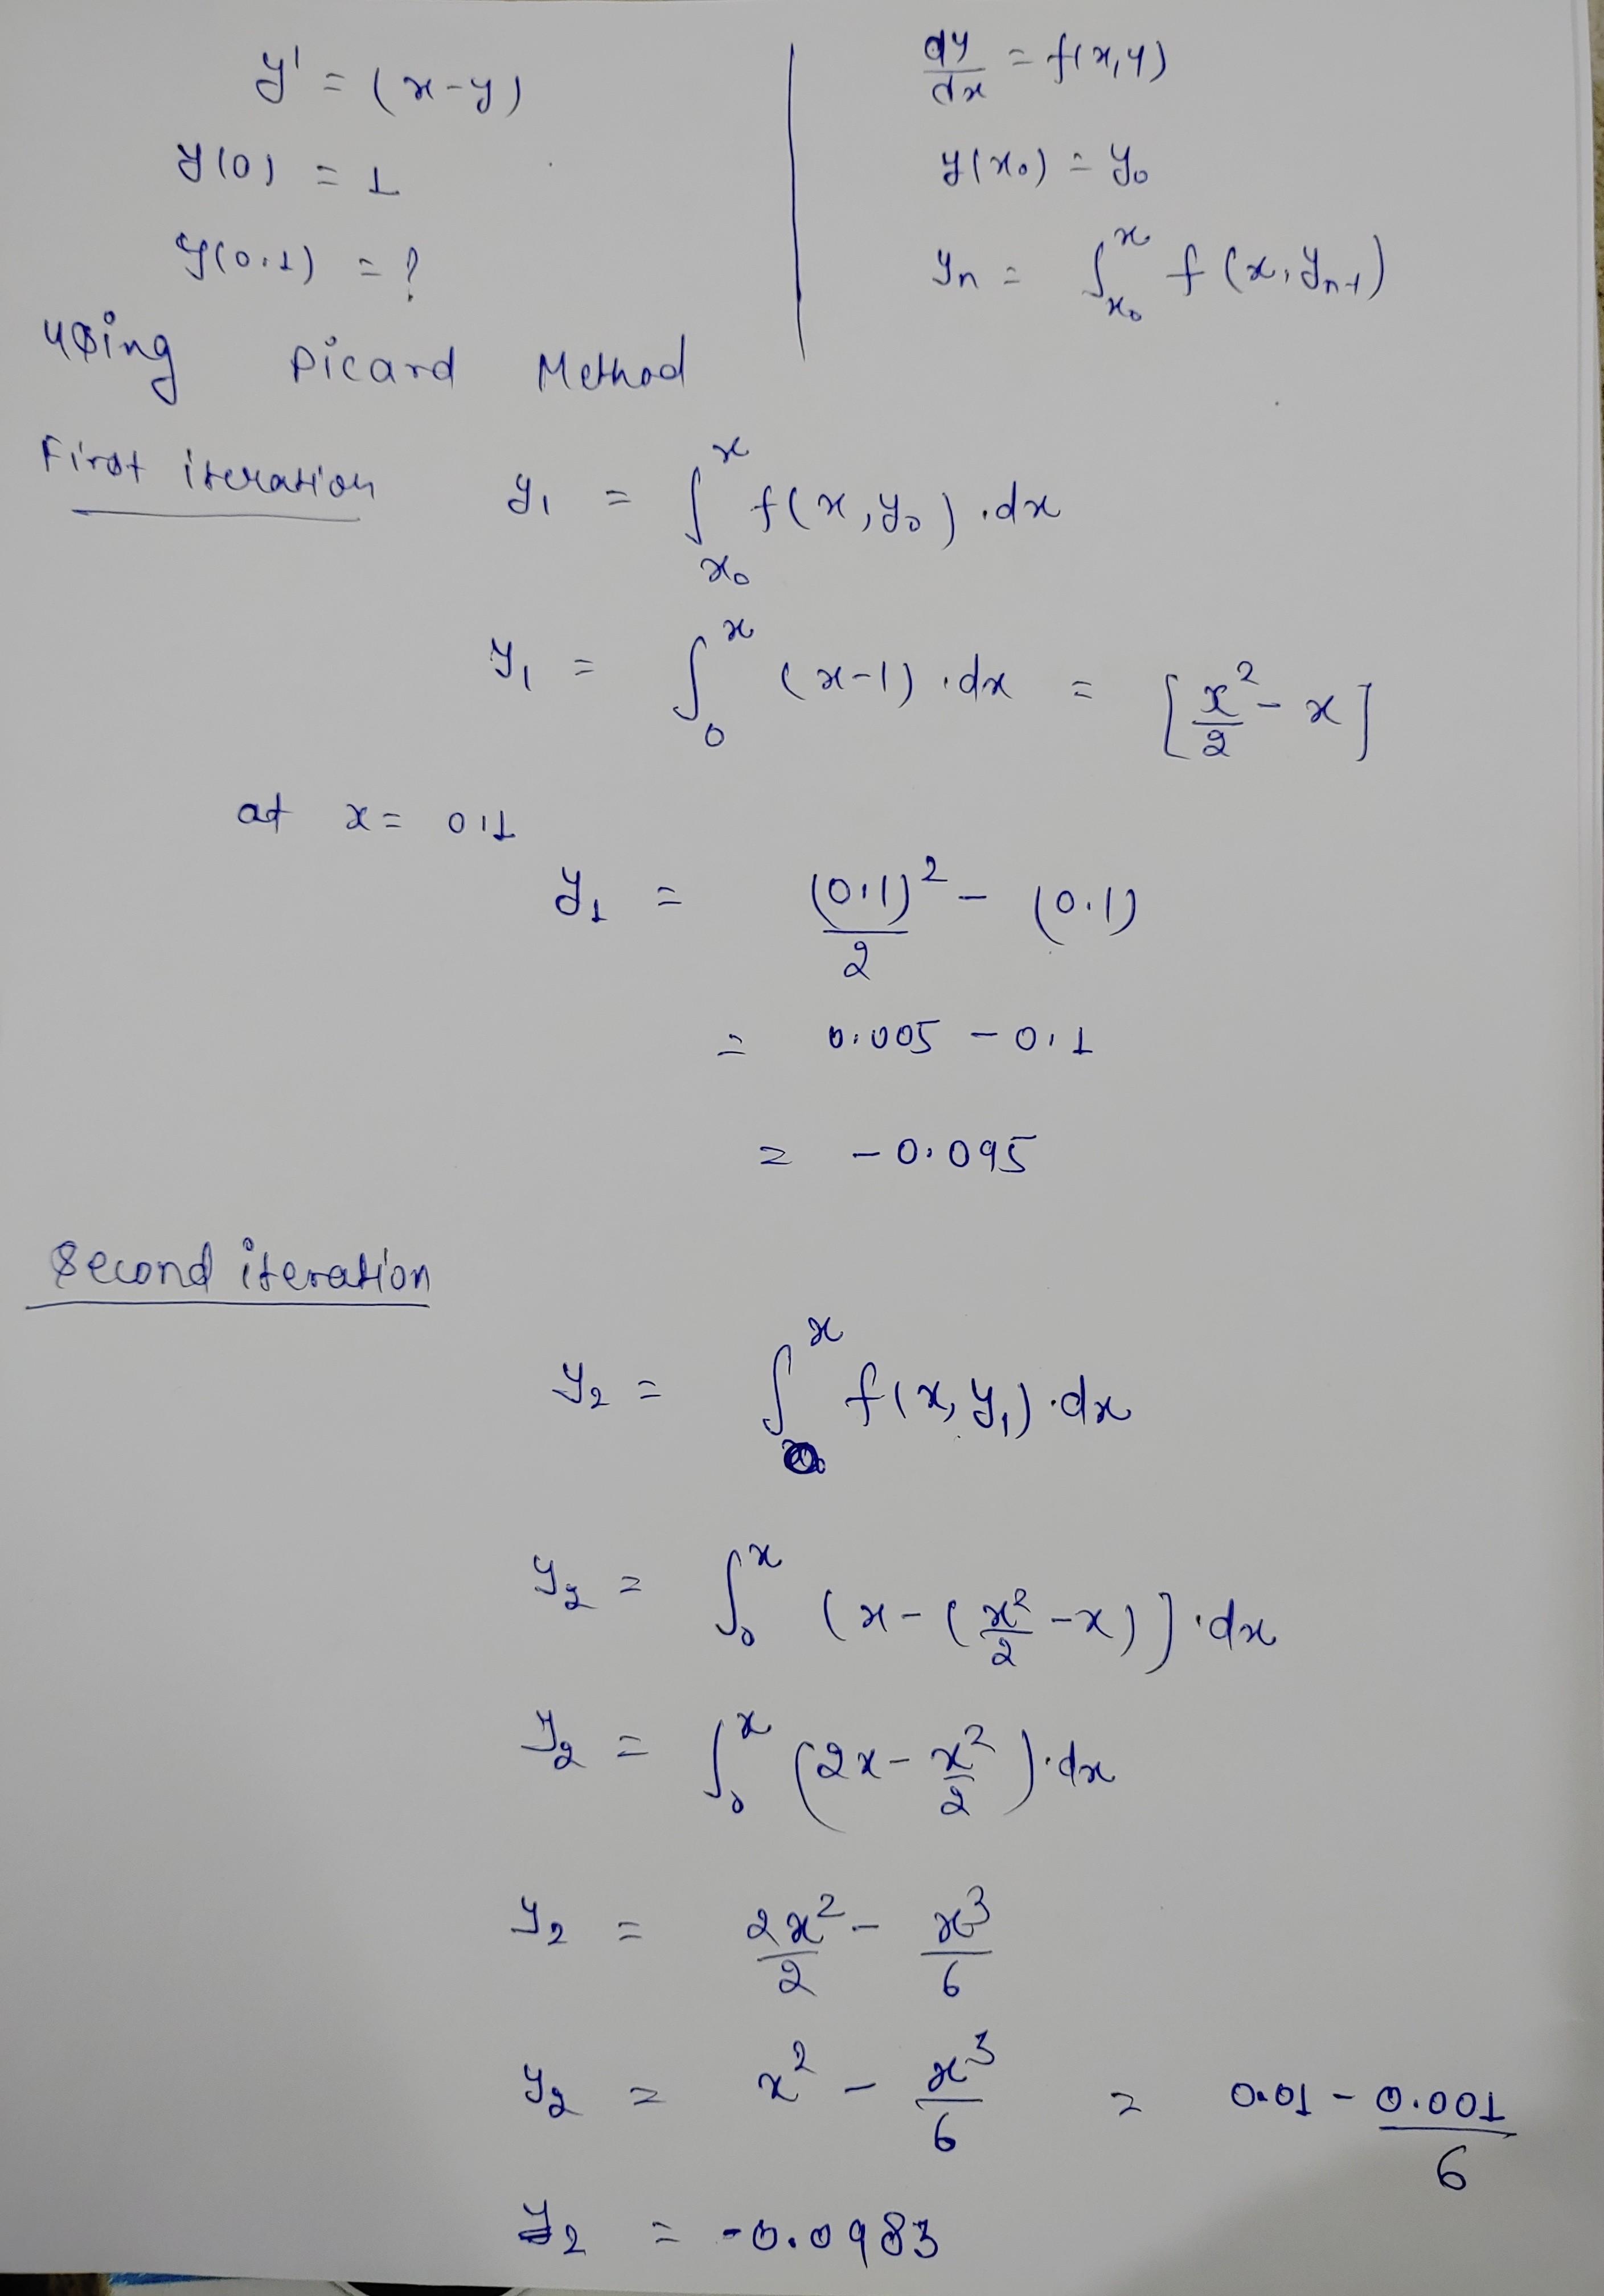 y' = (x-y)
y(0) = 1
y(0.1) = ?
dy/dx = f(x,y)
y(x₀) = y₀
yₙ = ∫ₓ₀ˣ f(x,yₙ₋₁)
using Picard Method
First iteration y₁ = ∫ₓ₀ˣ f(x,y₀).dx
y₁ = ∫₀ˣ (x-1).dx = [x²/2 - x]
at x = 0.1
y₁ = (0.1)²/2 - (0.1)
= 0.005 - 0.1
= -0.095
Second iteration
y₂ = ∫₀ˣ f(x,y₁).dx
y₂ = ∫₀ˣ (x-(x²/2 -x)].dx
y₂ = ∫₀ˣ (2x - x²/2).dx
y₂ = 2x²/2 - x³/6
y₂ = x² - x³/6 = 0.01 - 0.001/6
y₂ = -0.0983